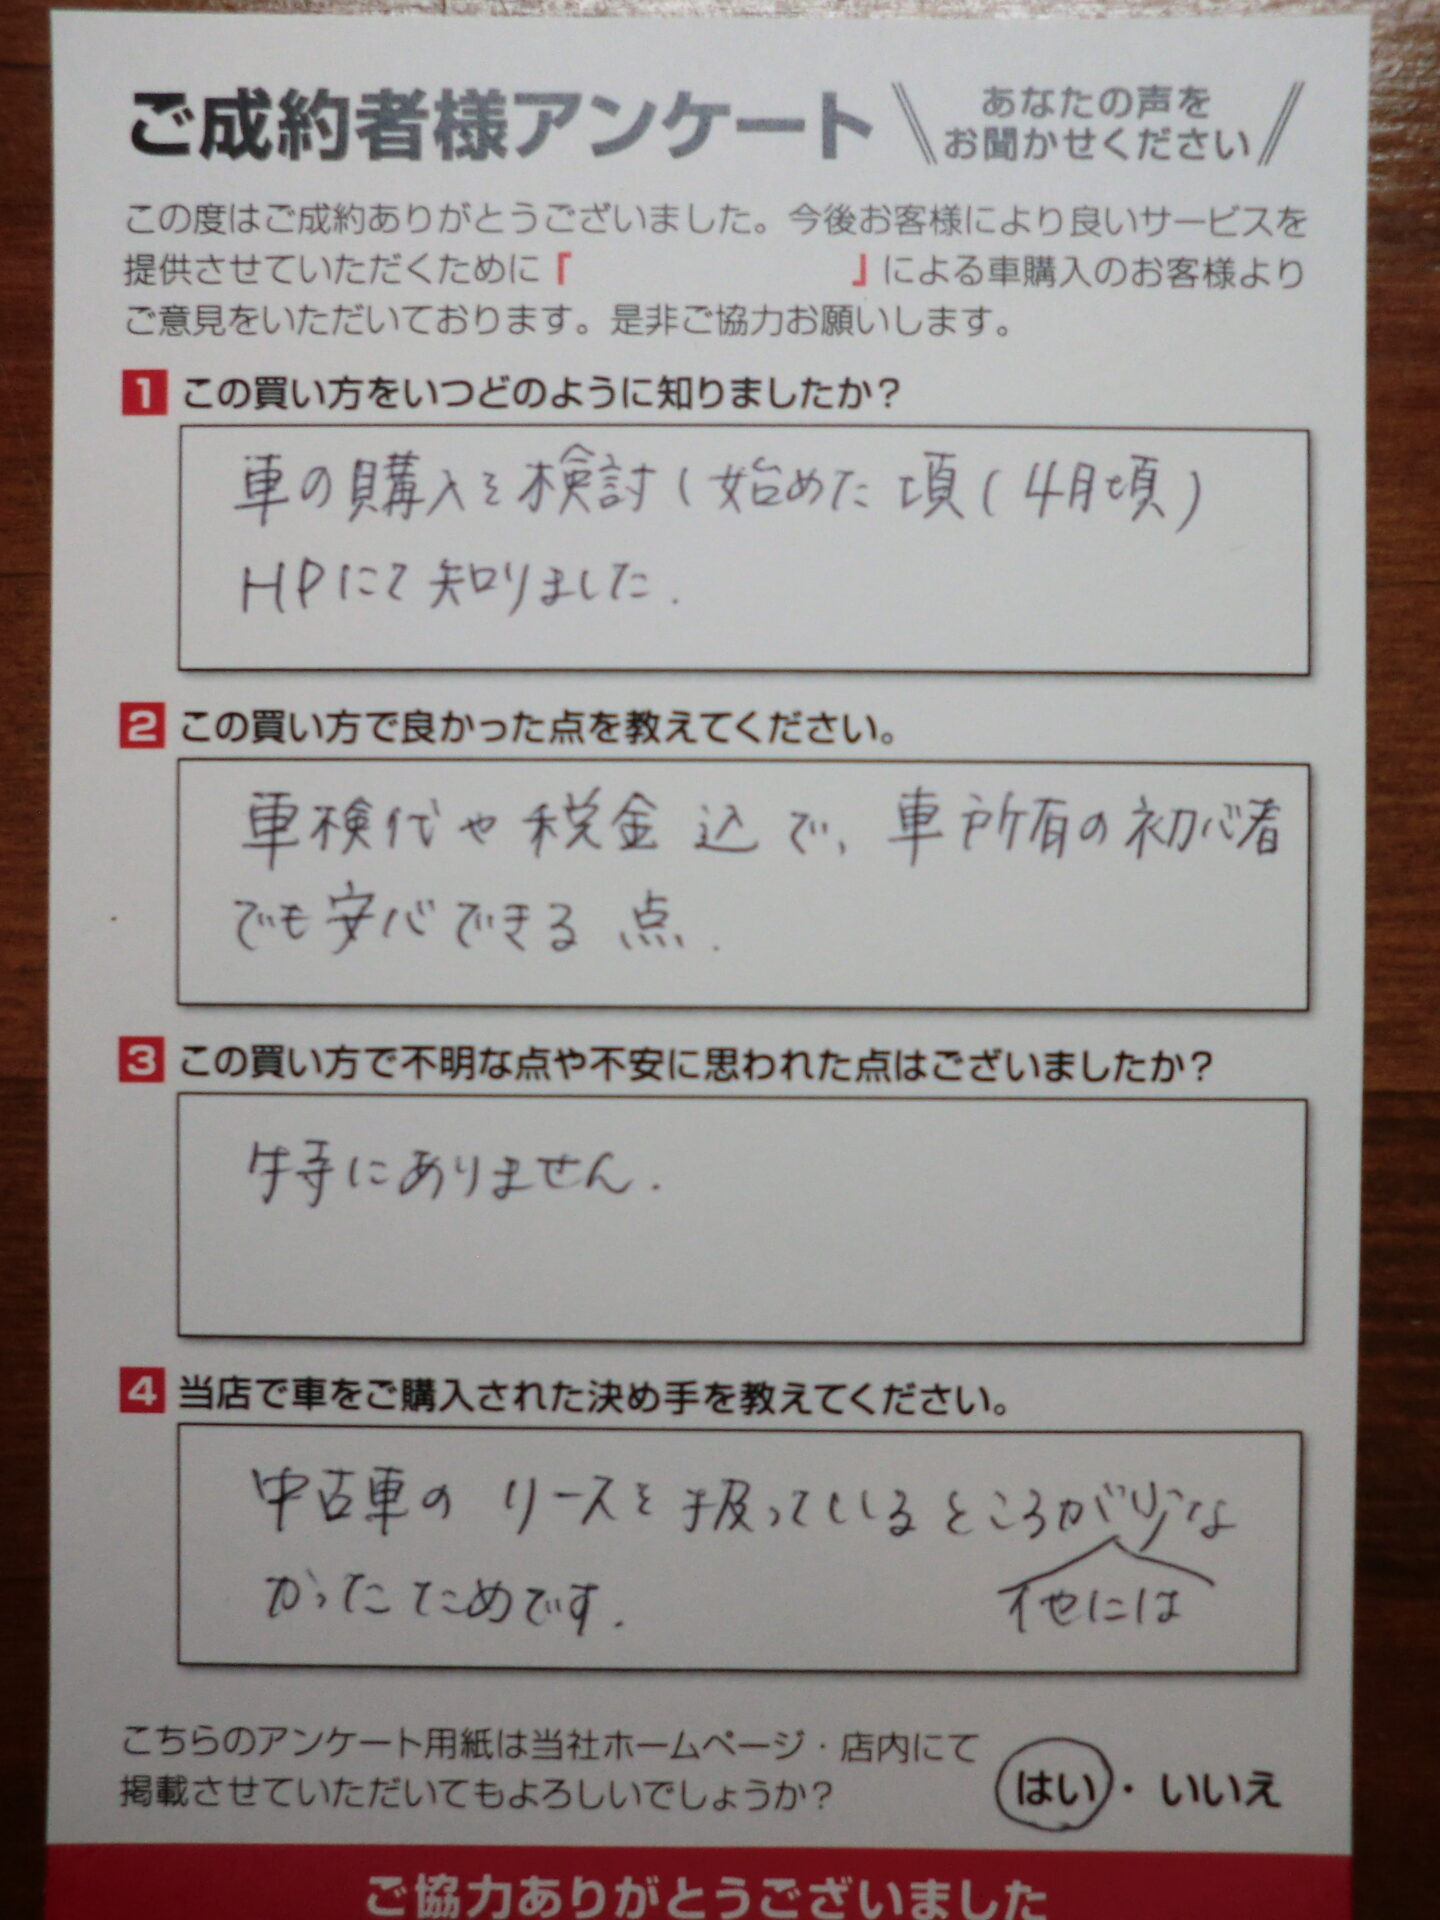 ご成約者様アンケート
あなたの声を
お聞かせください
この度はご成約ありがとうございました。今後お客様により良いサービスを
提供させていただくために『 』による車購入のお客様より
ご意見をいただいております。是非ご協力お願いします。
1 この買い方をいつどのように知りましたか？
車の購入を検討し始めた頃(4月頃)
HPにて知りました.
2 この買い方で良かった点を教えてください。
車検代や税金込で、車所有の初心者
でも安心できる点.
3 この買い方で不明な点や不安に思われた点はございましたか？
特にありません.
4 当店で車をご購入された決め手を教えてください。
中古車のリースを扱っているところが少な
かったためです.
他には
こちらのアンケート用紙は当社ホームページ・店内にて
掲載させていただいてもよろしいでしょうか？
はい・いいえ
ご協力ありがとうございました